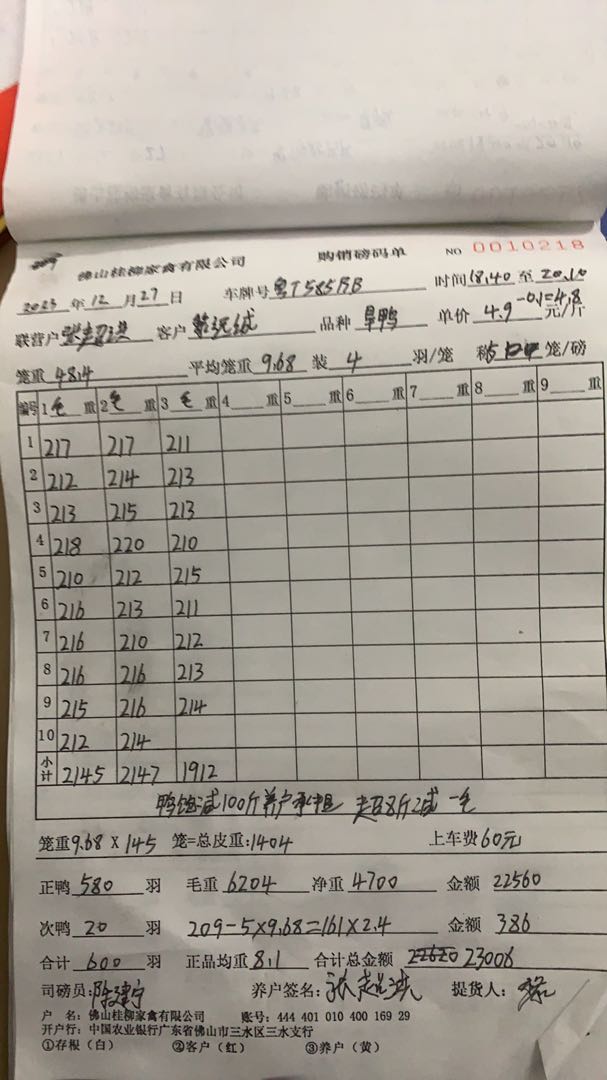 佛山桂柳家禽有限公司 购销磅码单 NO 0010218
2023 年 12 月 27 日 车牌号 粤T585BB 时间 18,40 至 20,10
联营户 客户 品种 旱鸭 单价 4.9-0.1=4.8 元/斤
笼重 48.4 平均笼重 9.68 装 4 羽/笼 称 5 笼/磅
编号 1 毛 重 2 毛 重 3 毛 重 4 重 5 重 6 重 7 重 8 重 9 重
1 217 217 211
2 212 214 213
3 213 215 213
4 218 220 210
5 210 212 215
6 216 213 211
7 216 210 212
8 216 216 213
9 215 216 214
10 212 214
小计 2145 2147 1912
鸭 减100斤养户承担 超8斤减一毛
笼重 9.68 X 145 笼=总皮重:1404 上车费 60元
正鸭 580 羽 毛重 6204 净重 4700 金额 22560
次鸭 20 羽 209-5×9.68=161×2.4 金额 386
合计 600 羽 正品均重 8.1 合计总金额 23006
司磅员: 养户签名: 提货人:
户 名: 佛山桂柳家禽有限公司 账号: 444 401 010 400 169 29
开户行: 中国农业银行广东省佛山市三水区三水支行
①存根（白） ②客户（红） ③养户（黄）